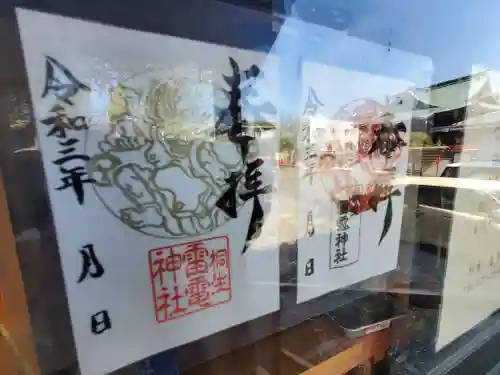 奉拝
令和三年 月 日
桐生
雷電
神社
奉拝
令和三年 月 日
雷電神社